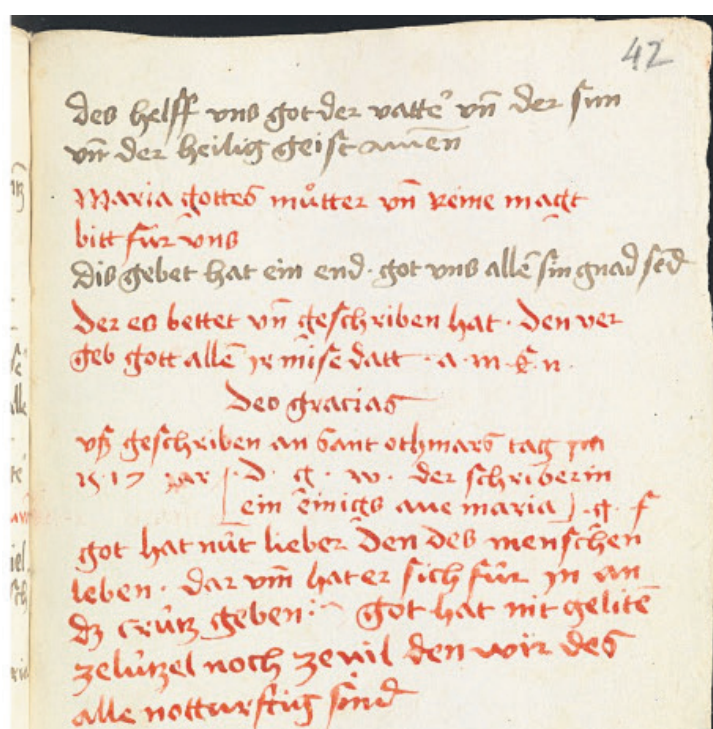 42
des helff vns got der vatte᾽ vn̄ der sun
vn̄ der heilig geist amen
Maria gottes můtter vn̄ reine magt
bitt für vns
dis gebet hat ein end · got vns allē sin gnad send
Der es bettet vn̄ geschriben hat · den ver
geb gott allē yr misse datt · a · m · e · n ·
Deo gracias
vß geschriben an sant othmars tag ym
1517 jar [ · D · g · w · der schriberin
ein einigs aue maria ] · g · f
got hat nüt lieber den des menschen
leben · dar vm̄ hat er sich für yn an
dz crütz geben · got hat nit gelitē
zelützel noch zeuil den wir des
alle notturftig sind